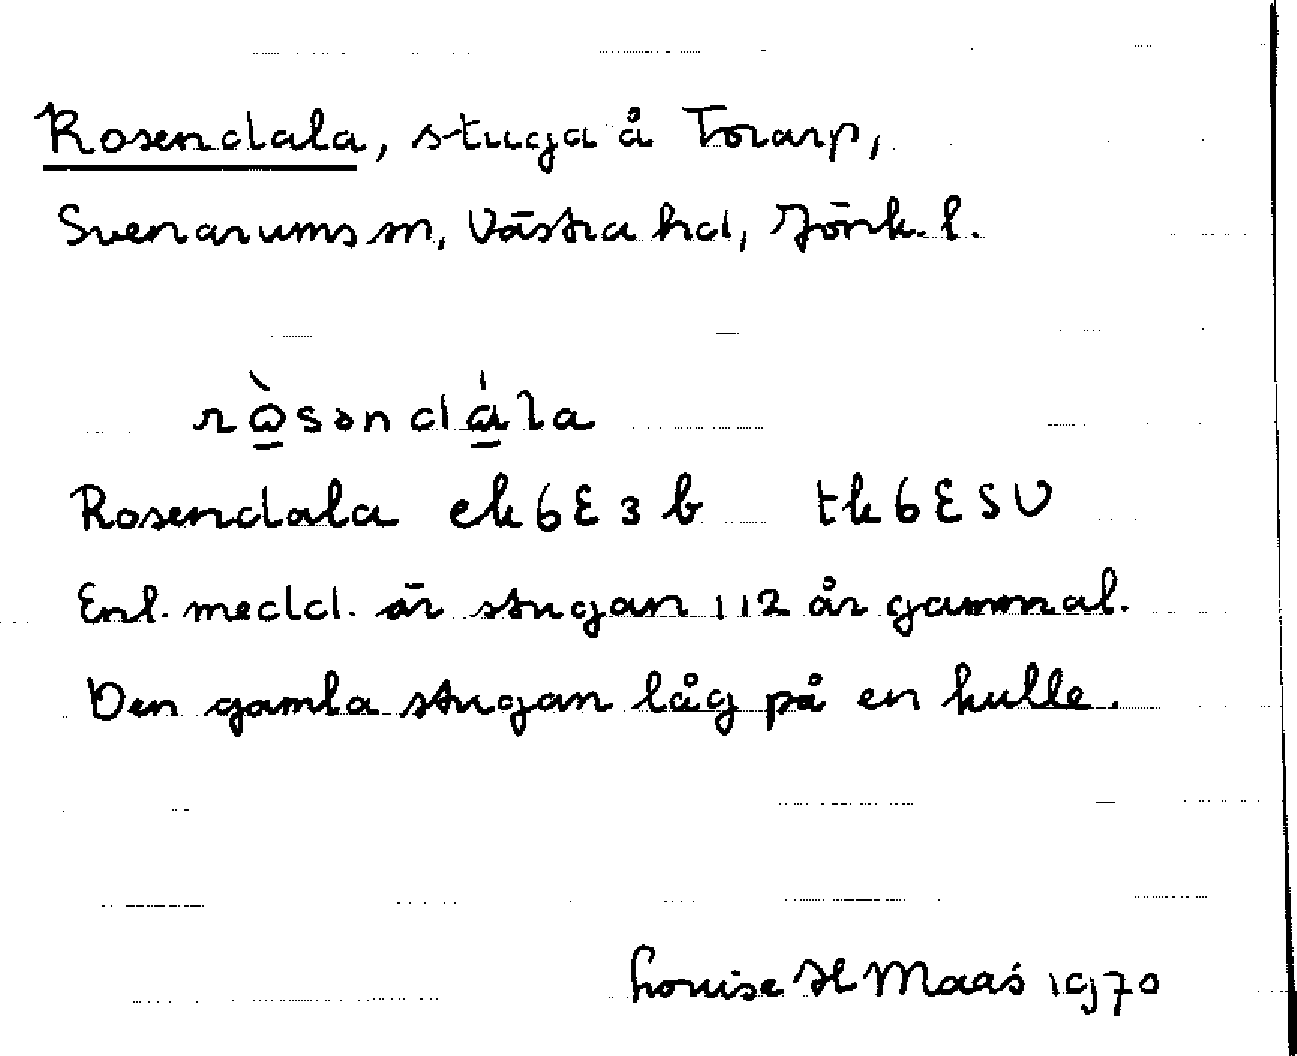 Rosendala, stuga å Torarp,
Svenarums sn, Västra hd, Jönk. l.
rò̱səndá̱la
Rosendala ek 6E3b tk 6ESV
Enl. medd. är stugan 112 år gammal.
Den gamla stugan låg på en kulle.
Louise H Maas 1970